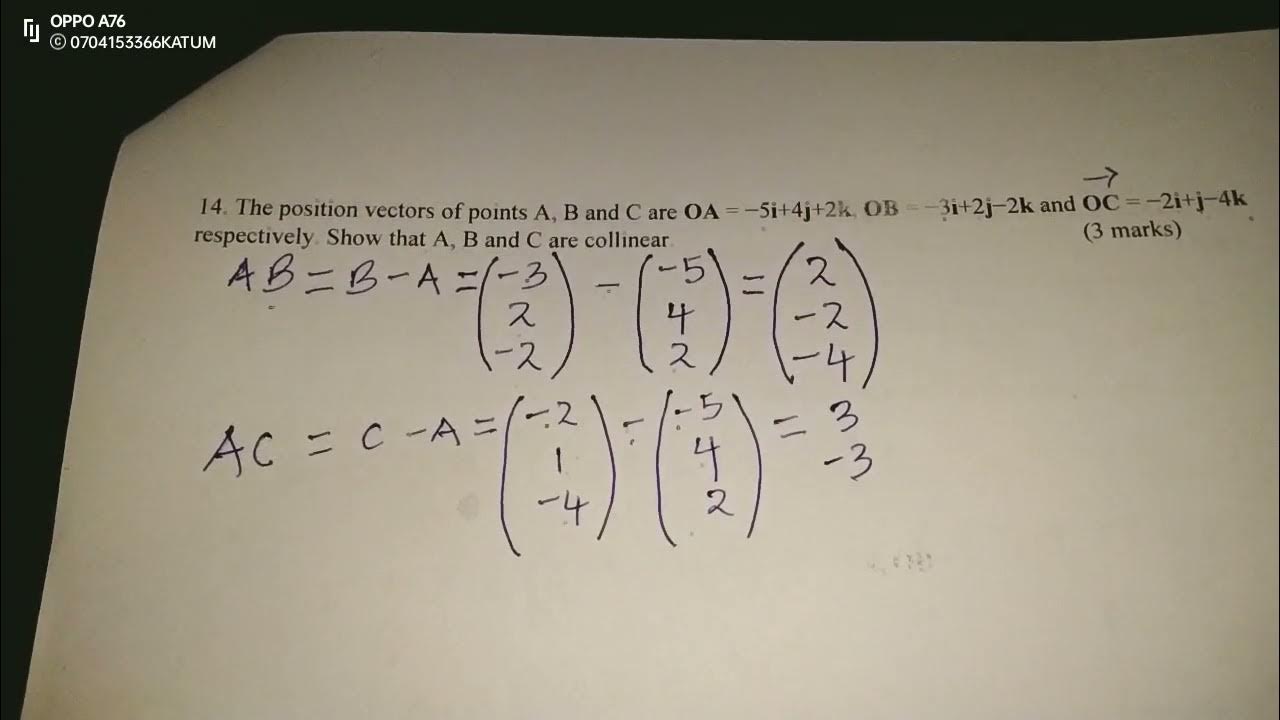 OPPO A76
© 0704153366KATUM
14. The position vectors of points A, B and C are OA = −5i+4j+2k, OB = −3i+2j−2k and OC = −2i+j−4k
respectively. Show that A, B and C are collinear. (3 marks)
AB = B - A = (-3 2 -2) - (-5 4 2) = (2 -2 -4)
AC = C - A = (-2 1 -4) - (-5 4 2) = 3 -3